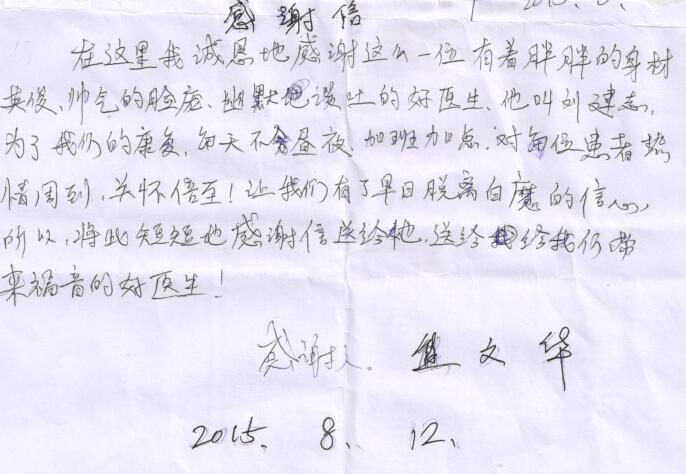 感谢信
在这里我诚恳地感谢这么一位有着胖胖的身材
英俊、帅气的脸庞、幽默地谈吐的好医生、他叫刘建志,
为了我们的康复,每天不分昼夜,加班加点.对每位患者热
情周到、关怀倍至!让我们有了早日脱离白魔的信心,
所以,将此短短地感谢信送给他,送给给我们带
来福音的好医生!
感谢人.熊文华
2015. 8. 12.